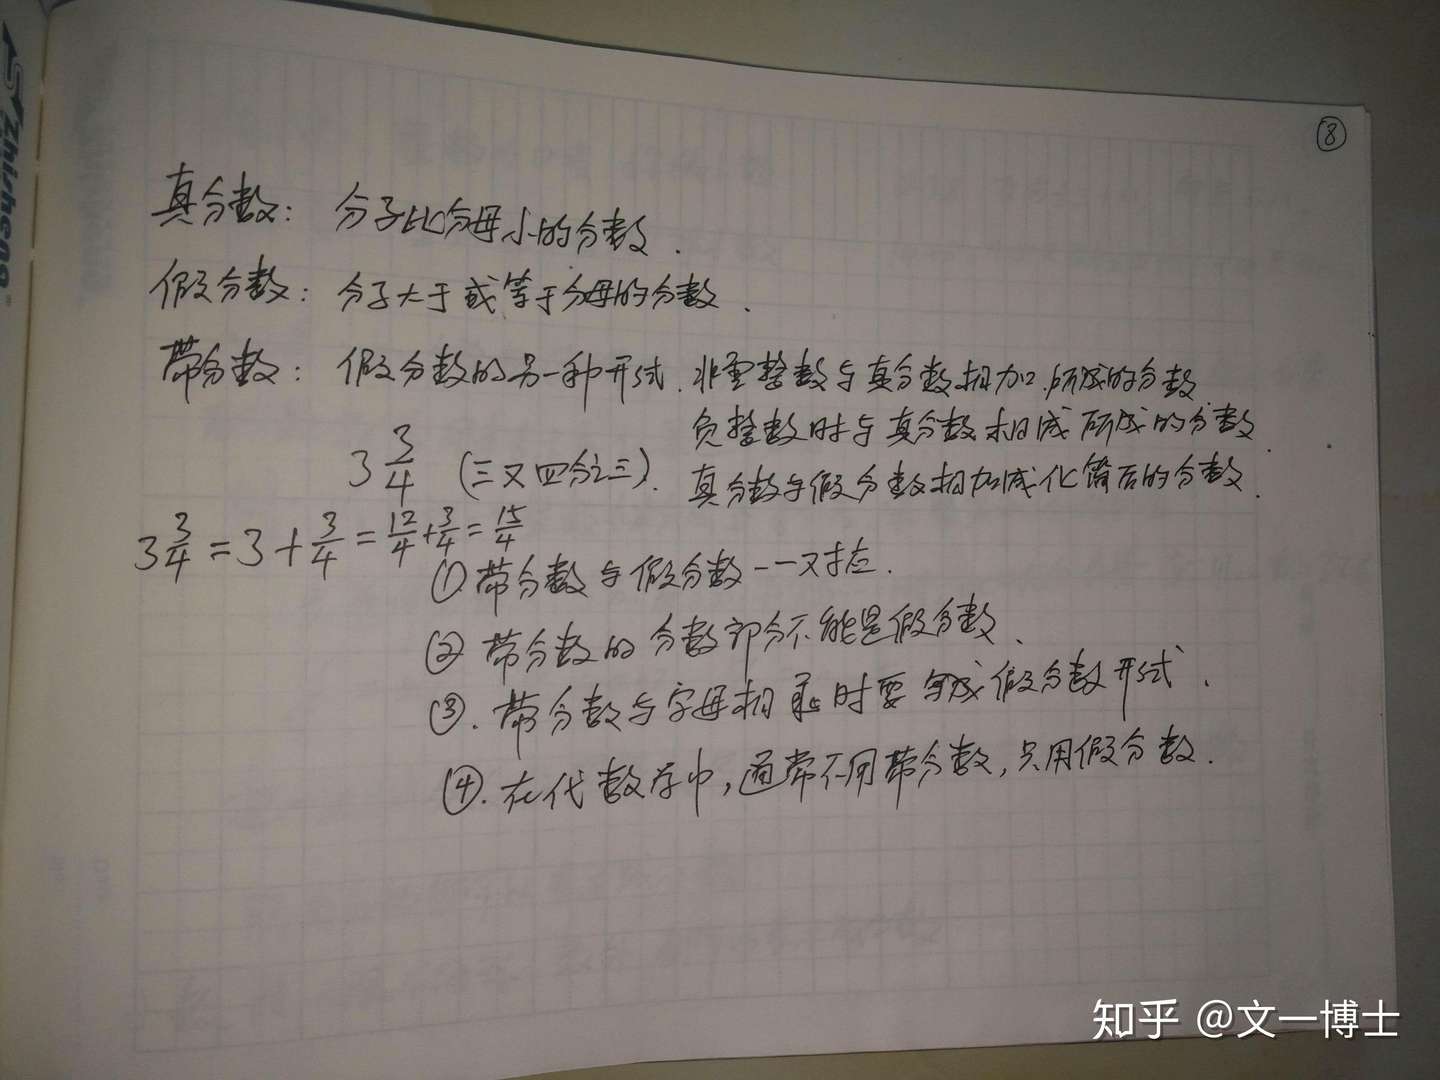 ⑧
真分数：分子比分母小的分数.
假分数：分子大于或等于分母的分数.
带分数：假分数的另一种形式.非零整数与真分数相加.所成的分数
负整数时与真分数相减所成的分数.
3 3/4 (三又四分之三).真分数与假分数相加减化简后的分数.
3 3/4 = 3 + 3/4 = 12/4 + 3/4 = 15/4
①带分数与假分数一一对应.
②带分数的分数部分不能是假分数.
③.带分数与字母相乘时要写成假分数形式.
④.在代数学中,通常不用带分数,只用假分数.
Zhisheng
知乎 @文一博士